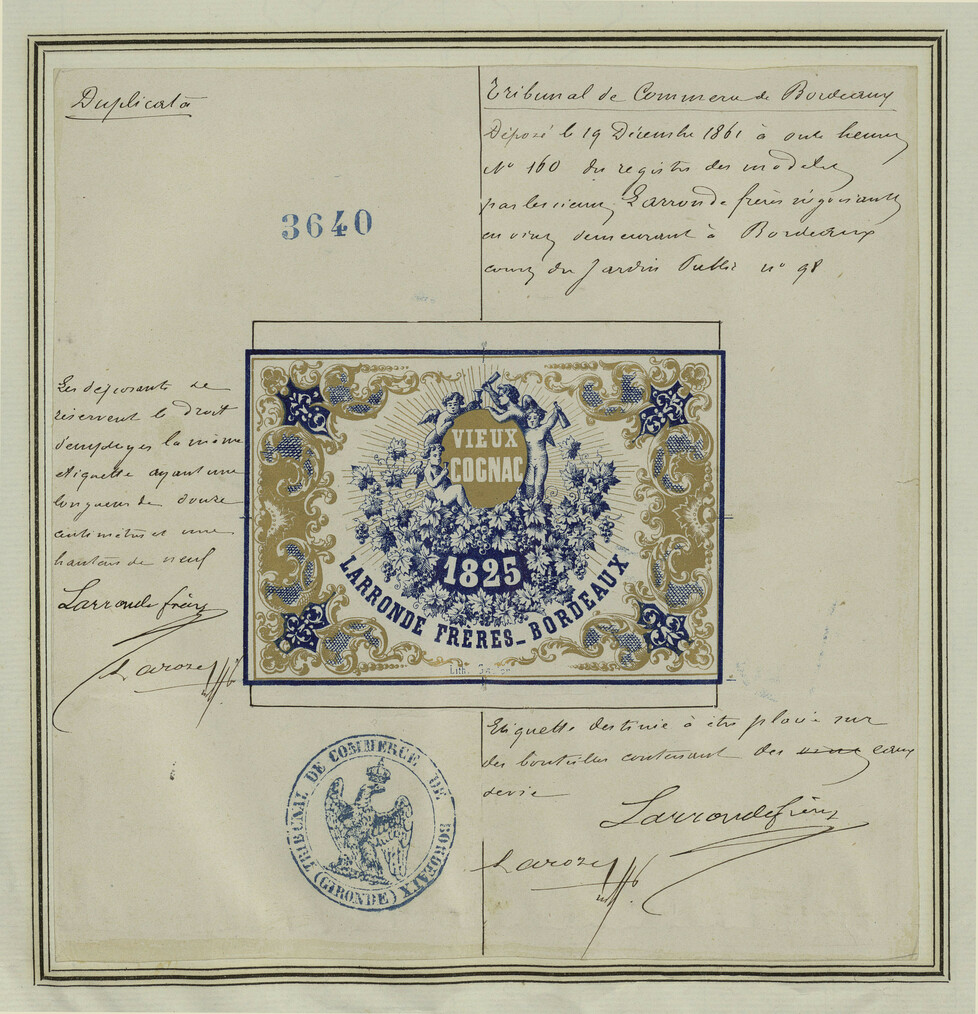 Duplicata
3640
Tribunal de Commerce de Bordeaux
Déposé le 19 Décembre 1861 à onze heures
N° 160 du registre des modeles
par les sieurs Larronde frères négociants
en vins demeurant à Bordeaux
cours du Jardin Public n° 98
Les déposants se
réservent le droit
d'employer la même
etiquette ayant une
longueur de douze
centimètres et une
hauteur de neuf
Larronde frères
Laroze
VIEUX
COGNAC
1825
LARRONDE FRÈRES_BORDEAUX
Lith.
Etiquette destinée à être placée sur
des bouteilles contenant des vins eaux
devie
Larronde frères
Laroze
TRIBUNAL DE COMMERCE DE BORDEAUX
(GIRONDE)